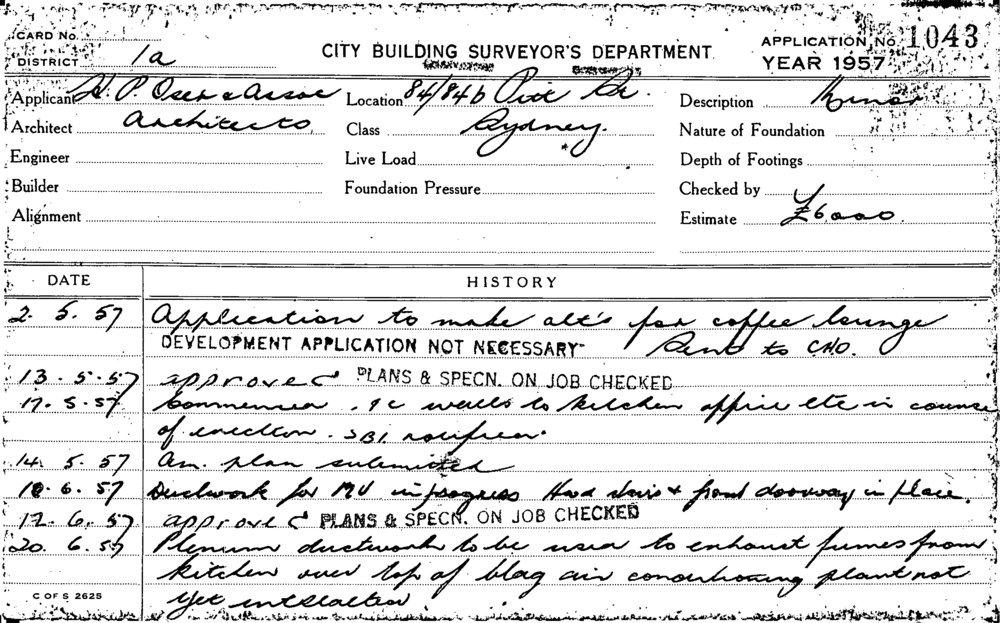 CARD No.
DISTRICT 1a
CITY BUILDING SURVEYOR'S DEPARTMENT
APPLICATION No. 1043
YEAR 1957
Applicant H. P. Oser & Assoc Location 84/84b Pitt St. Description Minor
Architect Architects, Class Sydney. Nature of Foundation
Engineer Live Load Depth of Footings
Builder Foundation Pressure Checked by
Alignment Estimate £6000.
DATE HISTORY
2. 5. 57 Application to make alt's for coffee lounge
DEVELOPMENT APPLICATION NOT NECESSARY Sent to CHO.
13. 5. 57 approved PLANS & SPECN. ON JOB CHECKED
17. 5. 57 Commenced. walls to kitchen office etc in course
of erection. SBI notified.
14. 5. 57 Am. plan submitted
10. 6. 57 Ductwork for MV in progress Hard stairs & front doorway in place.
12. 6. 57 approved PLANS & SPECN. ON JOB CHECKED
20. 6. 57 Plenum ductwork to be used to exhaust fumes from
kitchen over top of bldg air conditioning plant not
yet installed
C OF S 2625